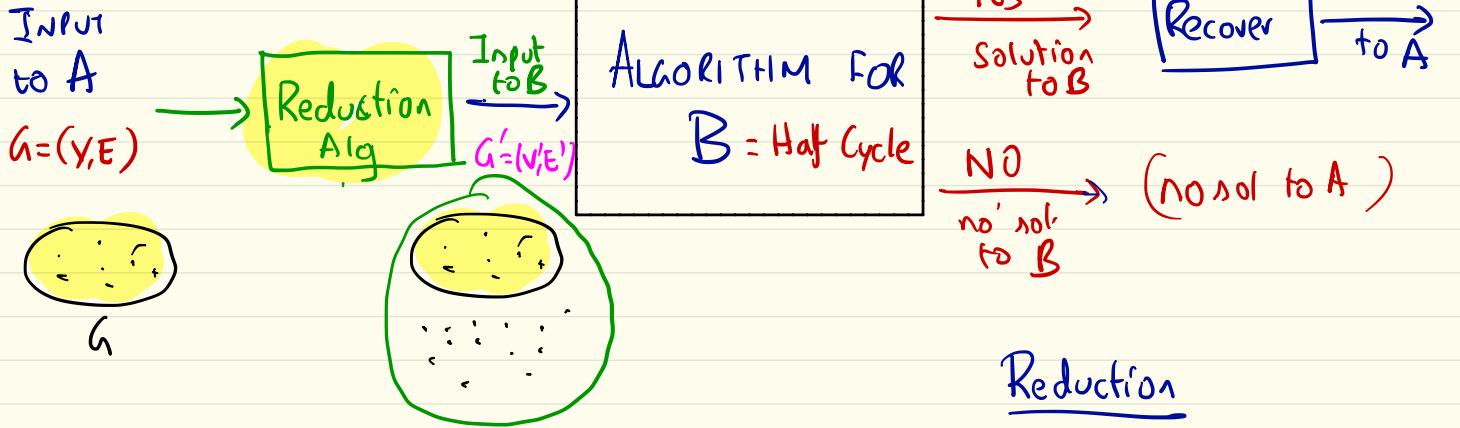 INPUT
to A
G=(V,E)
G
Reduction
Alg
Input
to B
G'=(V',E')
ALGORITHM FOR
B = Half Cycle
Solution
to B
NO
no sol.
to B
Recover
to A
(no sol to A)
Reduction